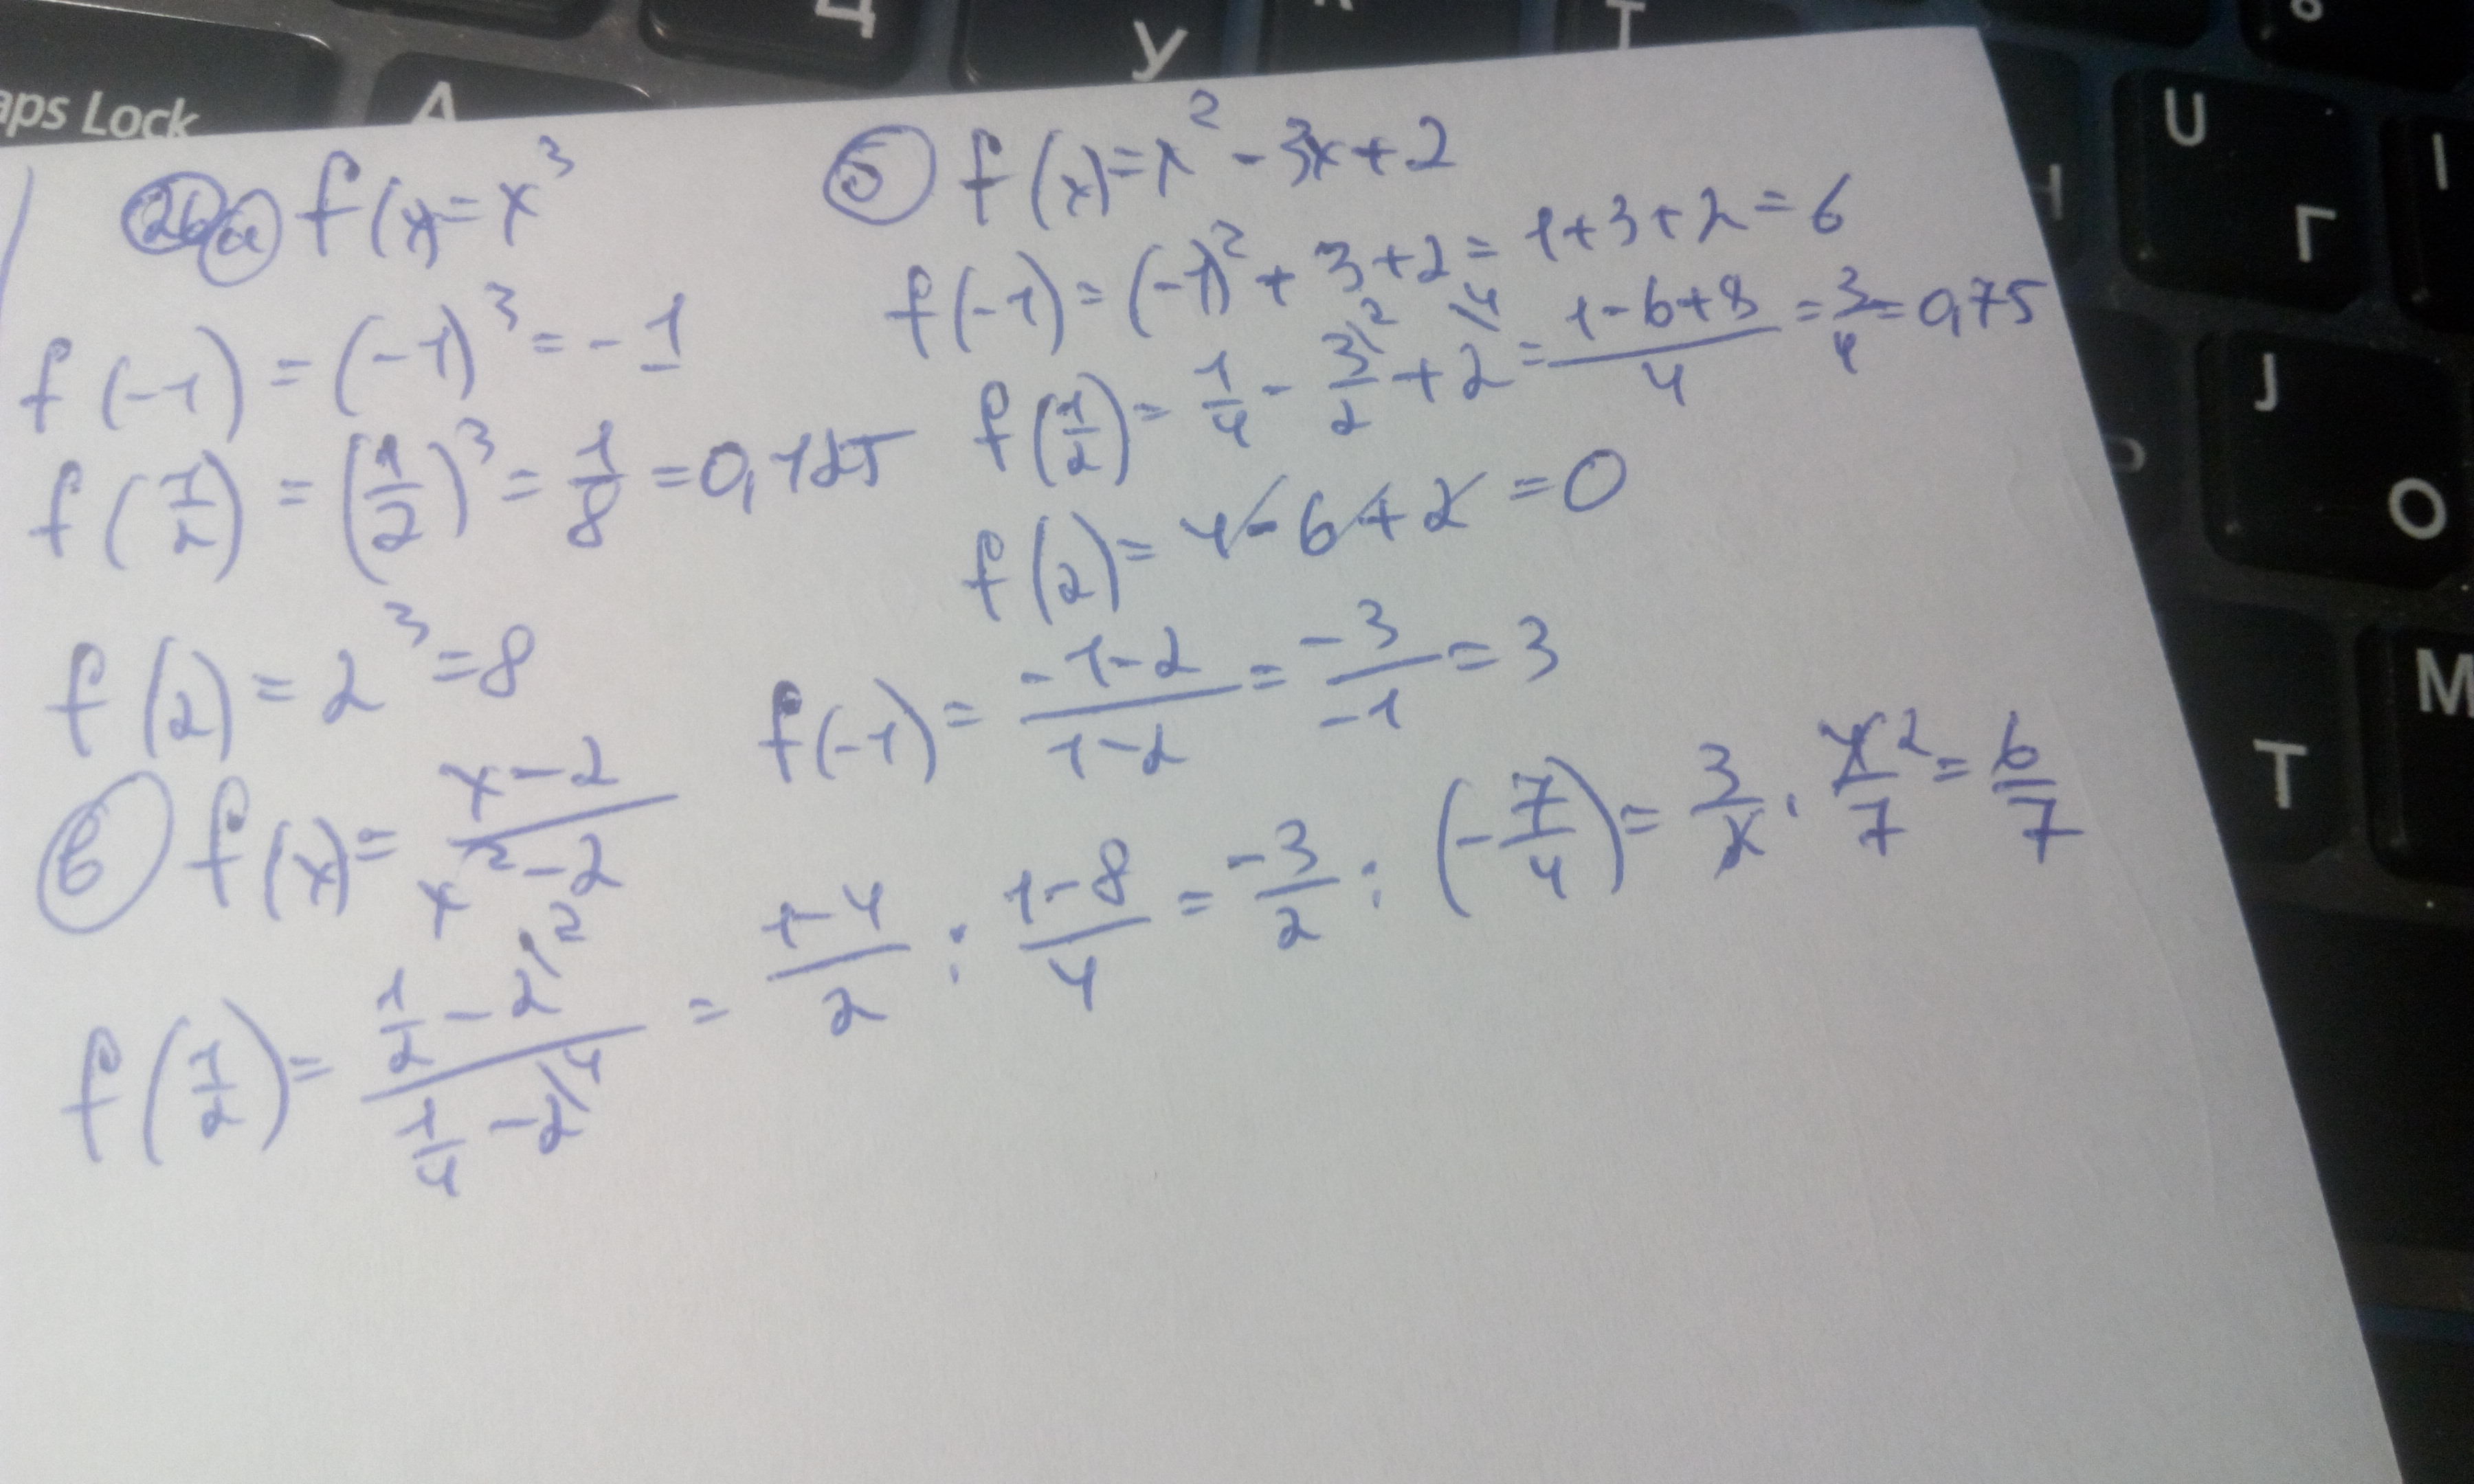 aps Lock
А
Ц
У
К
Т
U
Г
I
J
О
М
Т
26 а f(x)=x³
f(-1) = (-1)³ = -1
f(1/2) = (1/2)³ = 1/8 = 0,125
f(2) = 2³ = 8
б f(x)=x²-3x+2
f(-1) = (-1)²+3+2 = 1+3+2=6
f(1/2) = 1/4 - 3\²/2 + 2\⁴ = (1-6+8)/4 = 3/4 = 0,75
f(2) = 4-6+2 = 0
в f(x) = (x-2)/(x²-2)
f(-1) = (-1-2)/(1-2) = -3/-1 = 3
f(1/2) = (1/2 - 2\²)/(1/4 - 2\⁴) = (1-4)/2 : (1-8)/4 = -3/2 : (-7/4) = 3/2 · 4²/7 = 6/7